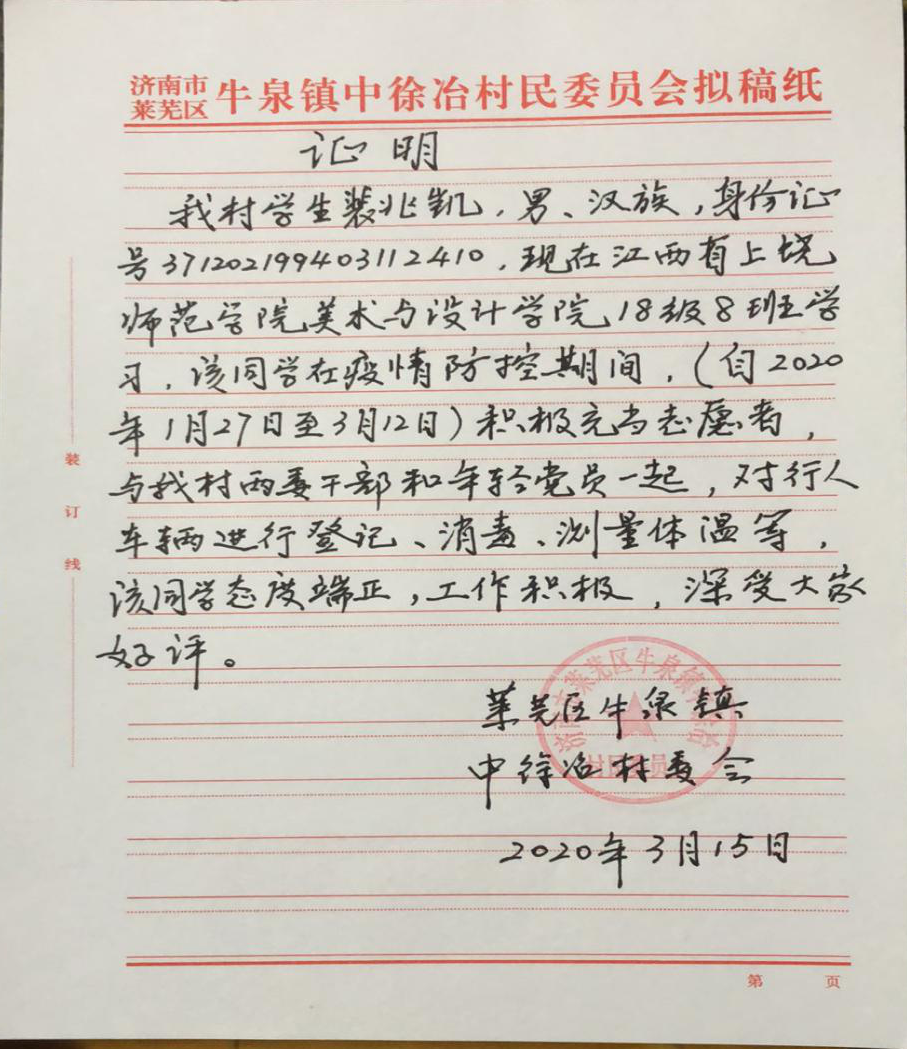 济南市
莱芜区 牛泉镇中徐冶村民委员会拟稿纸
证明
我村学生裴兆凯，男、汉族，身份证
号371202199403112410，现在江西有上饶
师范学院美术与设计学院18级8班学
习，该同学在疫情防控期间，（自2020
年1月27日至3月12日）积极充当志愿者，
与我村两委干部和年轻党员一起，对行人
车辆进行登记、消毒、测量体温等，
该同学态度端正，工作积极，深受大家
好评。
莱芜区牛泉镇
中徐冶村委会
2020年3月15日
装
订
线
第 页